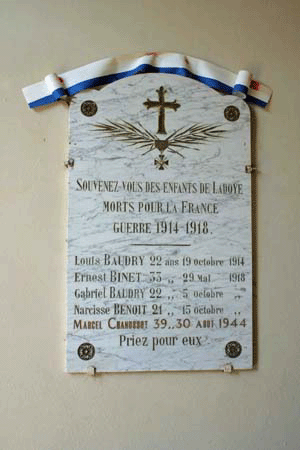 SOUVENEZ-VOUS DES ENFANTS DE LADOYE
MORTS POUR LA FRANCE
GUERRE 1914-1918.
Louis BAUDRY 22 ans 19 Octobre 1914
Ernest BINET 33 „ 29 Mai 1918
Gabriel BAUDRY 22 „ 5 Octobre „
Narcisse BENOIT 21 „ 15 Octobre „
MARCEL CHAUSSOT 39 „ 30 AOUT 1944
Priez pour eux